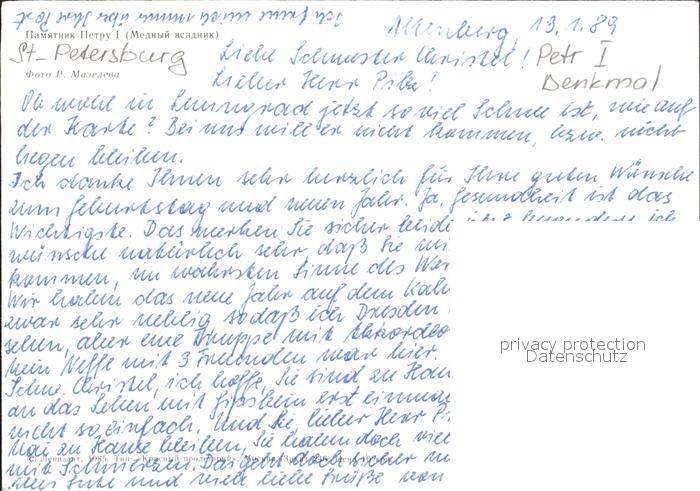 Ich freue mich immer über Ihre Post
Altenberg, 13.1.89
Памятник Петру I (Медный всадник)
St-Petersburg
Фото Р. Мазелева
Petr I
Denkmal
Liebe Schwester Christel!
Lieber Herr
Ob wohl in Leningrad jetzt so viel Schnee ist, wie auf
der Karte? Bei uns will er nicht kommen, bzw. nicht
liegen bleiben.
Ich danke Ihnen sehr herzlich für Ihre guten Wünsche
zum Geburtstag und neuen Jahr. Ja, Gesundheit ist das
Wichtigste. Das merken Sie sicher beide
wünsche natürlich sehr, daß Sie
kommen, im wahrsten Sinne des
Wir haben das neue Jahr auf dem
zwar sehr neblig sodaß ich Dresden
sehen, aber eine Truppe mit
Mein Neffe mit 3 Freunden war hier.
Schw. Christel, ich hoffe, Sie sind zu
an das Leben mit Gipsbein erst
nicht so einfach. Und Sie, lieber Herr
zu Hause bleiben, Sie haben doch
mit Schmerzen. Das geht doch sicher
Gute und viele liebe Grüße von
© Лениздат, 1985.
privacy protection
Datenschutz